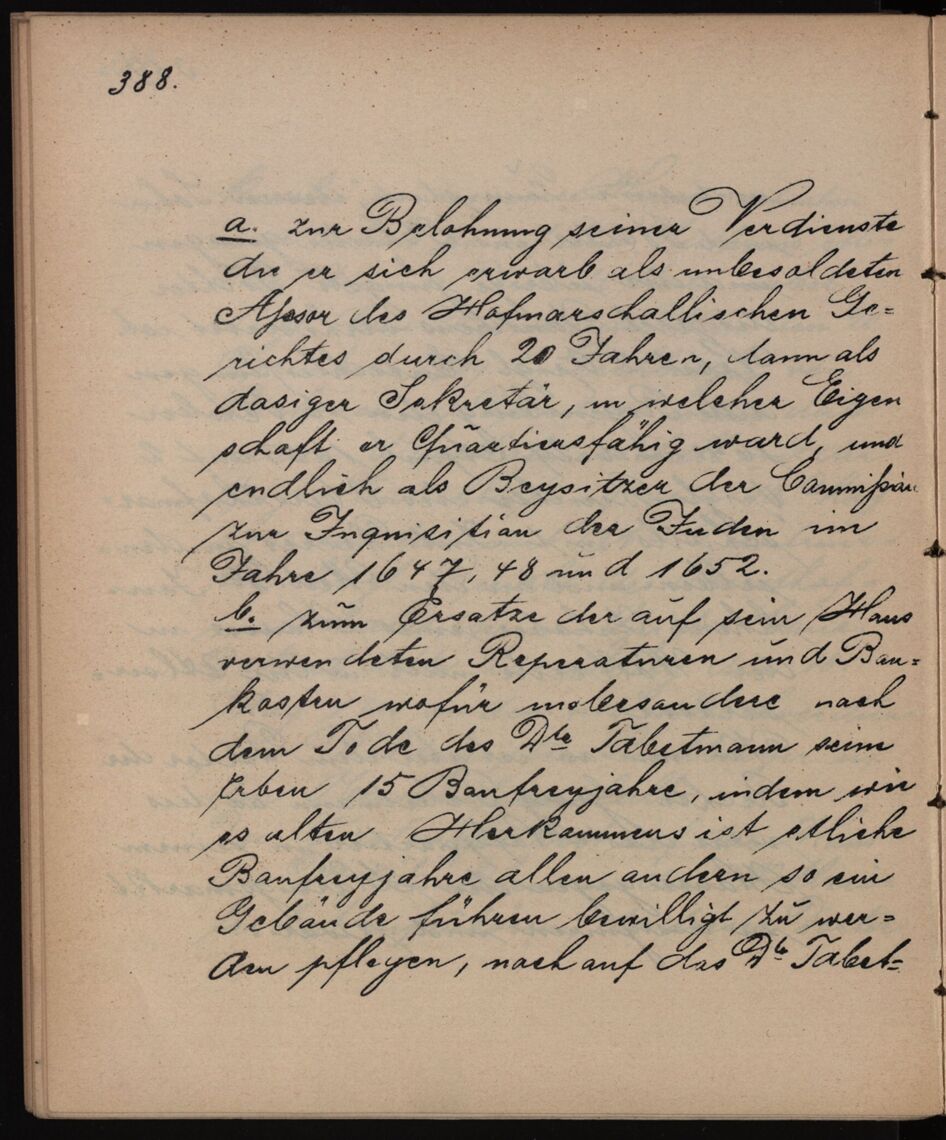 388.
a. zur Belohnung seiner Verdienste
die er sich erwarb als unbesoldeten
Assesor des Hofmarschallischen Ge=
richtes durch 20 Jahren, dann als
dasiger Sekretär, in welcher Eigen
schaft er Quartiersfähig ward, und
endlich als Beysitzer der Commission
zur Inquisition der Juden im
Jahre 1647, 48 und 1652.
b. zum Ersatze der auf sein Haus
verwendeten Reperaturen und Bau=
kosten wofür insbesondere nach
dem Tode des Dte Tabetmann seine
Erben 15 Baufreyjahre, indem wie
es alten Herkommens ist etliche
Baufreyjahre allen andern so ein
Gebäude führen bewilligt zu wer=
den pflegen, noch auf das Dte Tabet=